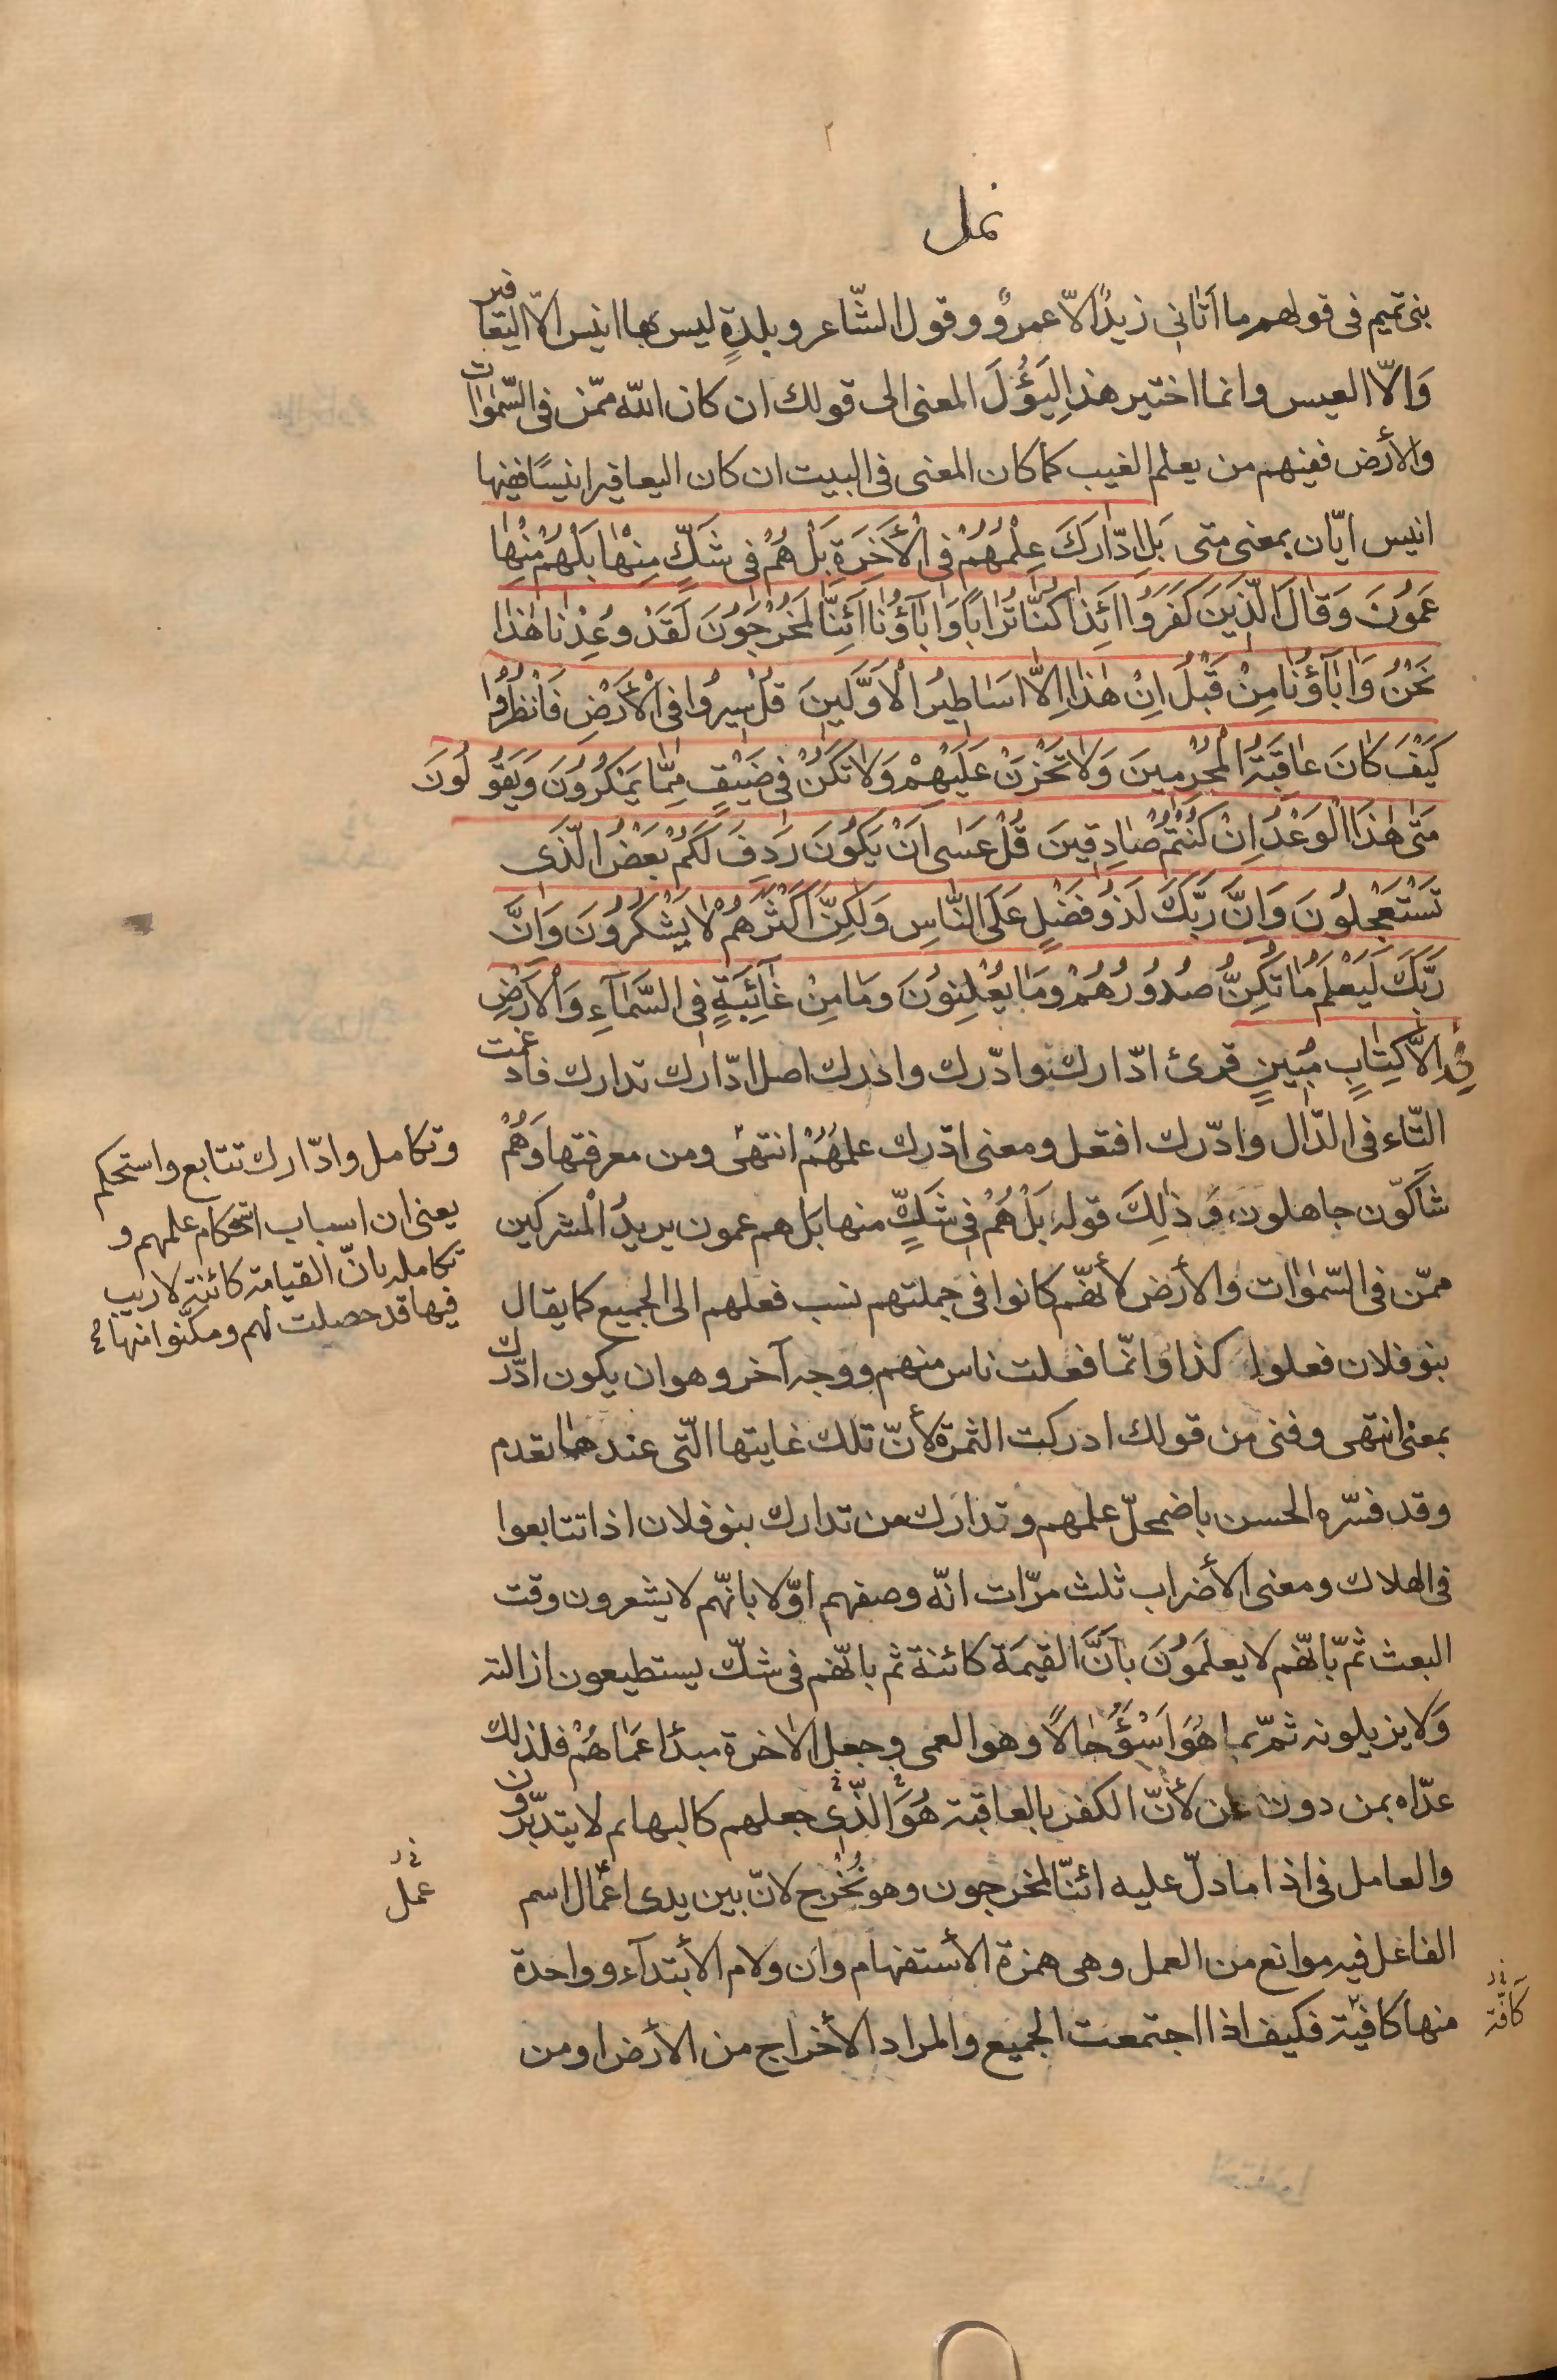 ٢
نمل
بنى تميم فى قولهم ما اتانى زيدٌ الّا عمروٌ وقول الشّاعر وبلدةٍ ليس بها انيس الّا اليعافير
وَالّا العيس وانما اختير هذا لِيَؤُلَ المعنى الى قولك ان كان اللّه ممّن فى السّمٰوات
والأرض ففيهم من يعلم الغيب كما كان المعنى فى البيت ان كان اليعافير انيسًا ففيها
انيس ايّان بمعنى متى بَلِ ادّٰارَكَ عِلْمُهُمْ فى الْأٰخِرَةِ بَلْ هُمْ فى شَكٍّ مِنْهٰا بَلْ هُمْ مِنْهٰا
عَمُونَ وَقٰالَ الَّذِينَ كَفَرَوُا اَئِذٰا كُنّٰا تُرٰابًا وَاٰبٰآؤُنٰا اَئِنّٰا لَمُخْرَجُونَ لَقَدْ وُعِدْنٰا هٰذٰا
نَحْنُ وَاٰبٰآؤُنٰا مِنْ قَبْلُ اِنْ هٰذٰا اِلّٰا اَسٰاطِيرُ الْاَوَّلِينَ قُلْ سِيرُوا فى الْأَرْضِ فَانْظُرُوا
كَيْفَ كٰانَ عٰاقِبَةُ الْمُجْرِمِينَ وَلٰا تَحْزَنْ عَلَيْهِمْ وَلٰا تَكُنْ فى ضَيْقٍ مِمّٰا يَمْكُرُونَ وَيَقُولُونَ
مَتٰى هٰذَا الْوَعْدُ اِنْ كُنْتُمْ صٰادِقِينَ قُلْ عَسٰى اَنْ يَكُونَ رَدِفَ لَكُمْ بَعْضُ الَّذى
تَسْتَعْجِلُونَ وَاِنَّ رَبَّكَ لَذُو فَضْلٍ عَلَى النّٰاسِ وَلٰكِنَّ اَكْثَرَهُمْ لٰا يَشْكُرُونَ وَاِنَّ
رَبَّكَ لَيَعْلَمُ مٰا تُكِنُّ صُدُورُهُمْ وَمٰا يُعْلِنُونَ وَمٰا مِنْ غٰآئِبَةٍ فِى السَّمٰآءِ وَالْاَرْضِ
اِلّٰا فى كِتٰابٍ مُبينٍ قرئ ادّارك وادّرك واذرك اصل ادّارك تدارك فادغمت
التّاء فى الدّال وادّرك افتعل ومعنى ادّرك علمُهُمْ انتهى ومن معرفتها وَهُمْ
شاكّون جاهلون وَذٰلِكَ قوله بَلْ هُمْ فى شَكٍّ منها بَل هم عمون يريدُ الْمشركين
ممّن فى السّمٰوٰات والأرض لأنّهم كانوا فى جملتهم نسب فعلهم الى الجميع كما يقال
بنو فلان فعلوا كذا وانّما فعلت ناس منهم ووجه آخر وهو ان يكون ادّرك
بمعنى انتهى وفنى من قولك ادركت الثمرة لأنّ تلك غايتها الّتى عندها تعدم
وقد فسّره الحسن باضمحلّ علمهم وتدارك من تدارك بنو فلان اذا تتابعوا
فى الهلاك ومعنى الأضراب ثلث مرّات انّه وصفهم اوّلا بانّهم لا يشعرون وقت
البعث ثمّ بانّهم لا يعلَمُونَ باَنَّ القيمَة كائنة ثم بانّهم فى شكّ يستطيعون ازالته
وَلا يزيلونه ثمّ بما هُوَ اَسْوَُ حٰالًا وهو العمى وجعل الاٰخرة مبدأ عَمَاهُمْ فلذلك
عدّاه بمن دون عن لأنّ الكفر بالعاقبة هُوَ الَّذى جعلهم كالبهائم لا يتدبّرون
والعامل فى اذا ما دلّ عليه ائنّا لمخرجون وهو نُخْرج لانّ بين يدى اعمٰال اسم
الفاعل فيه موانع من العمل وهى همزة الأستفهام وان ولام الأبتدآء وواحدة
منها كافية فكيف اذا اجتمعت الجميع والمراد الأخراج من الأرض او من
وتكامل وادّارك تتابع واستحكم
يعنى ان اسباب استحكام علمهم و
تكامله بانّ القيامة كائنة لا ريب
فيها قد حصلت لهم ومكّنوا منها
عمل
كافة